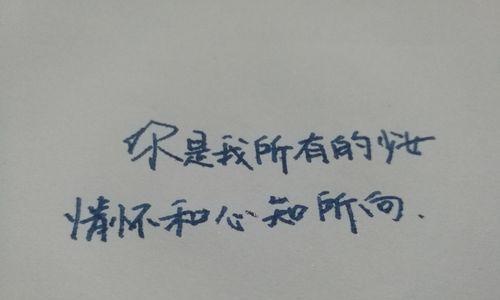 你是我所有的少女
情怀和心知所向.